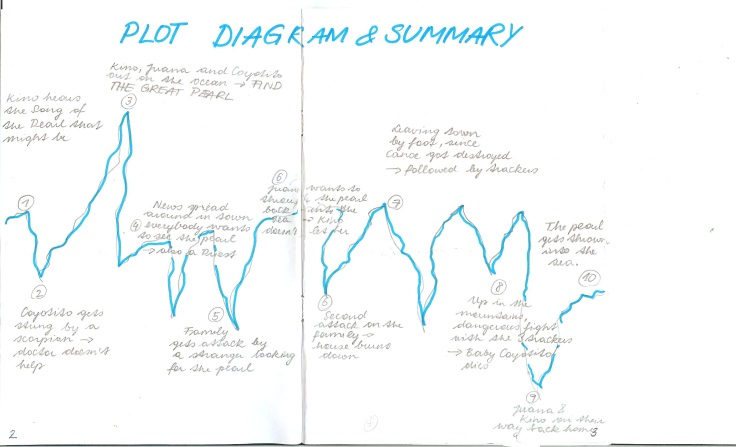 PLOT DIAGRAM & SUMMARY
Kino hears
the Song of
the Pearl that
might be
1
2
Coyotito gets
stung by a
scorpion →
doctor doesn't
help
Kino, Juana and Coyotito
out on the ocean → FIND
THE GREAT PEARL
3
News spread
around in town
4 everybody wants
to see the pearl
→ also a Priest
5
Family
gets attack by
a stranger looking
for the pearl
6
Juana wants to
throw the pearl
back into the
sea → Kino
doesn't let her
6
Second
attack on the
family →
house burns
down
Leaving town
by foot, since
Canoe got destroyed
→ followed by trackers
7
8
Up in the
mountains,
dangerous fight
with the 3 trackers
→ Baby Coyotito
dies
9
Juana &
Kino on their
way back home
The pearl
gets thrown
into the
sea.
10
2
3